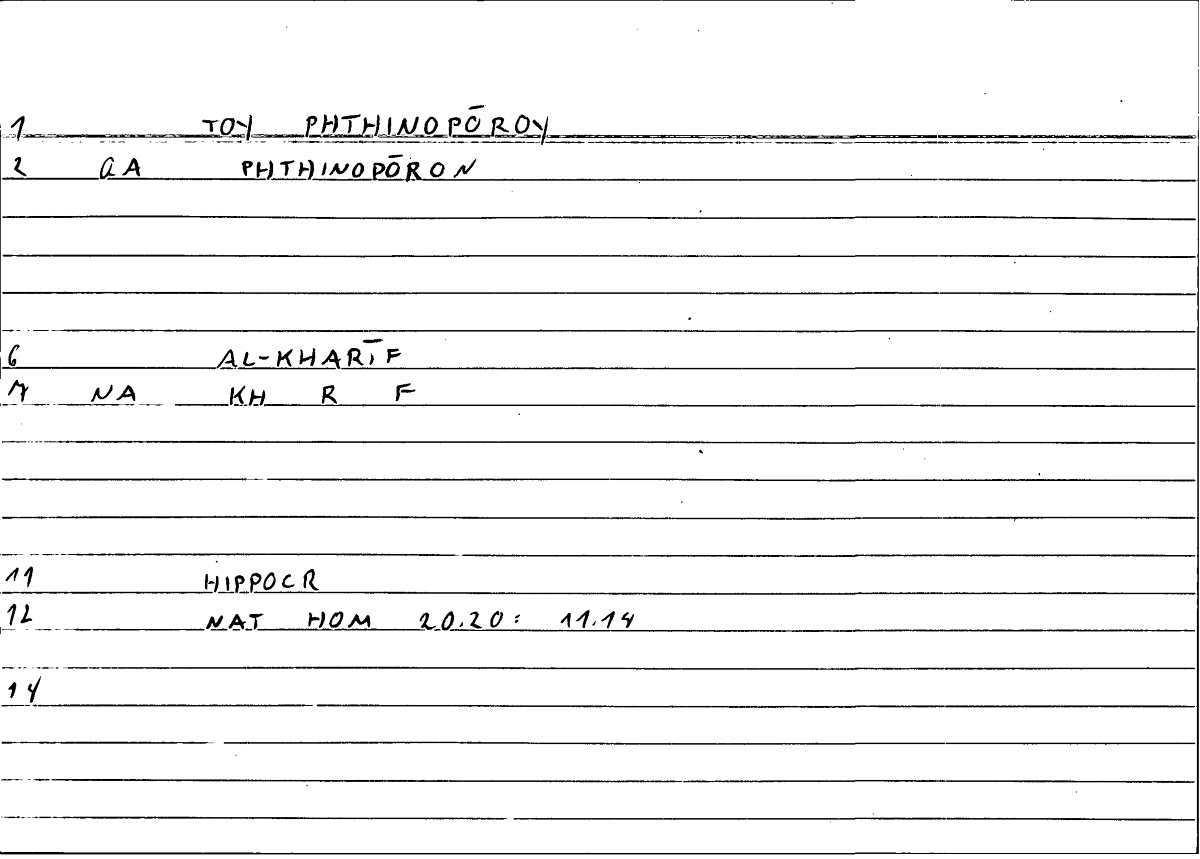 1 TOY PHTHINOPŌROY
2 QA PHTHINOPŌRON
6 AL-KHARĪF
7 NA KH R F
11 HIPPOCR
12 NAT HOM 20.20: 11.14
14